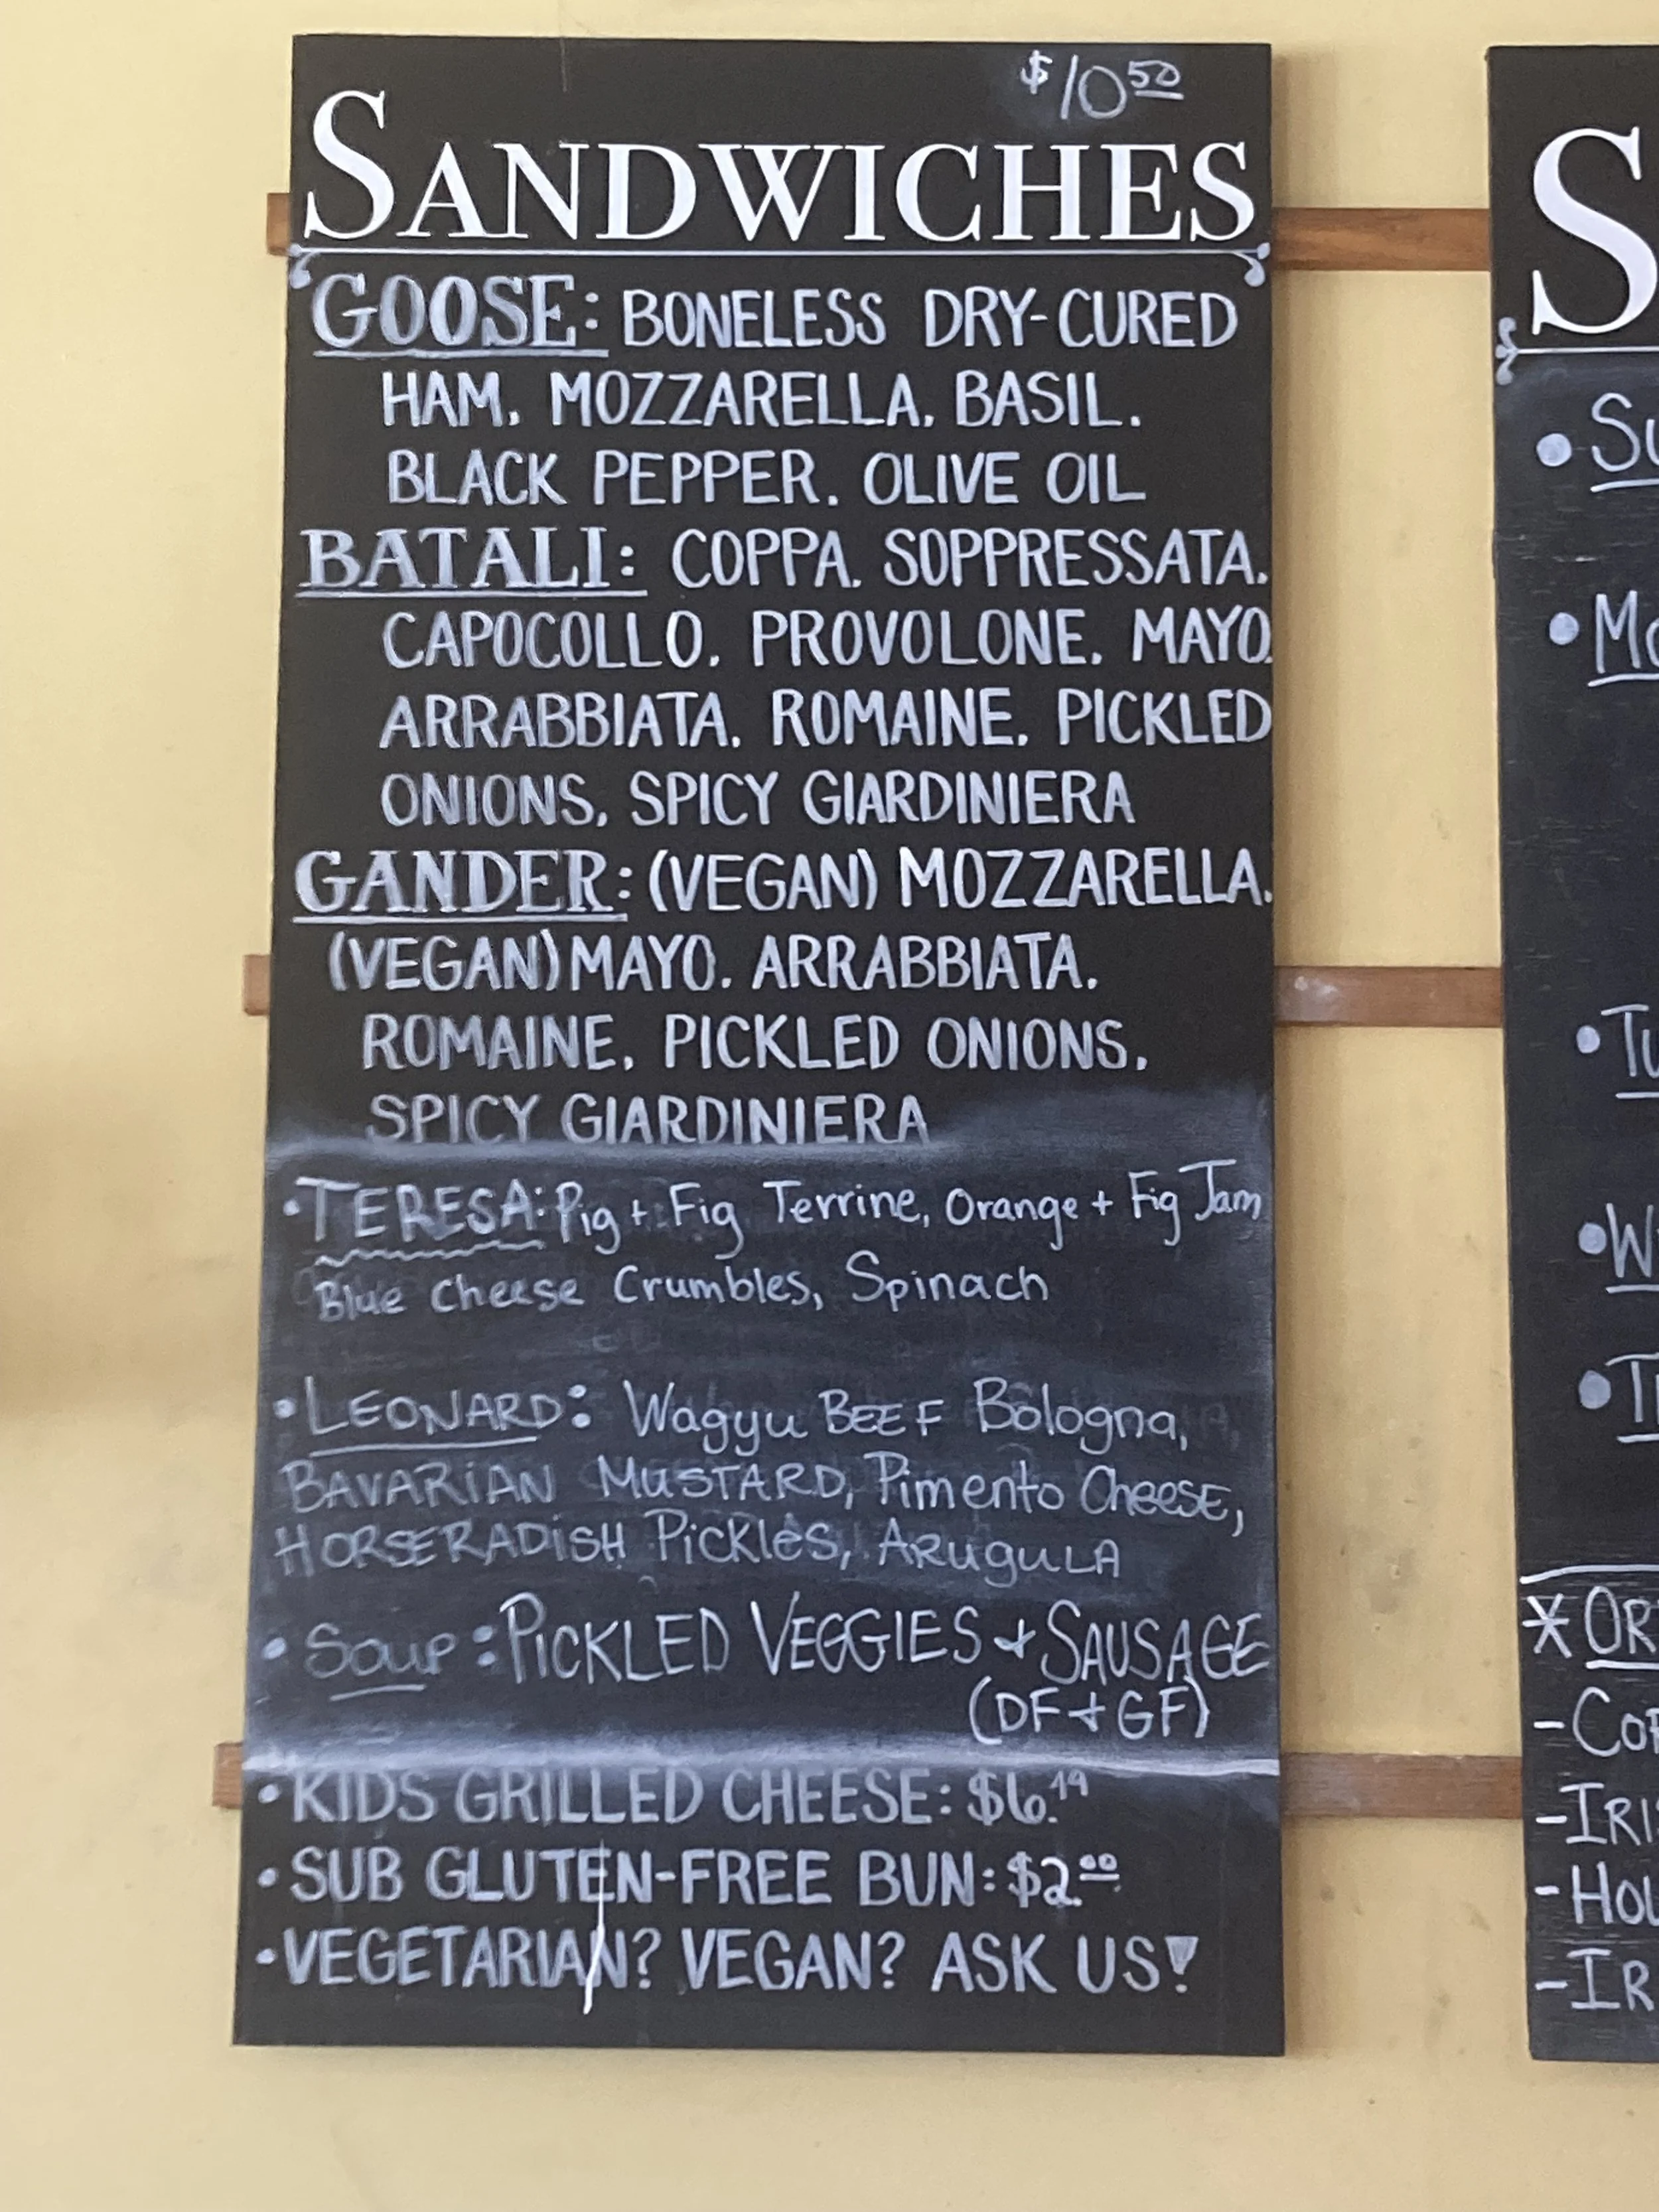 $10 50
SANDWICHES
GOOSE: BONELESS DRY-CURED
HAM, MOZZARELLA, BASIL,
BLACK PEPPER, OLIVE OIL
BATALI: COPPA, SOPPRESSATA,
CAPOCOLLO, PROVOLONE, MAYO,
ARRABBIATA, ROMAINE, PICKLED
ONIONS, SPICY GIARDINIERA
GANDER: (VEGAN) MOZZARELLA,
(VEGAN) MAYO, ARRABBIATA,
ROMAINE, PICKLED ONIONS,
SPICY GIARDINIERA
• TERESA: Pig + Fig Terrine, Orange + Fig Jam
Blue Cheese Crumbles, Spinach
• LEONARD: Wagyu BEEF Bologna,
BAVARIAN MUSTARD, Pimento CheeSE,
HORSERADiSH Pickles, ARuguLA
• Soup: PICKLED VEGGIES + SAUSAGE
(DF + GF)
• KIDS GRILLED CHEESE: $6.49
• SUB GLUTEN-FREE BUN: $2.00
• VEGETARIAN? VEGAN? ASK US!